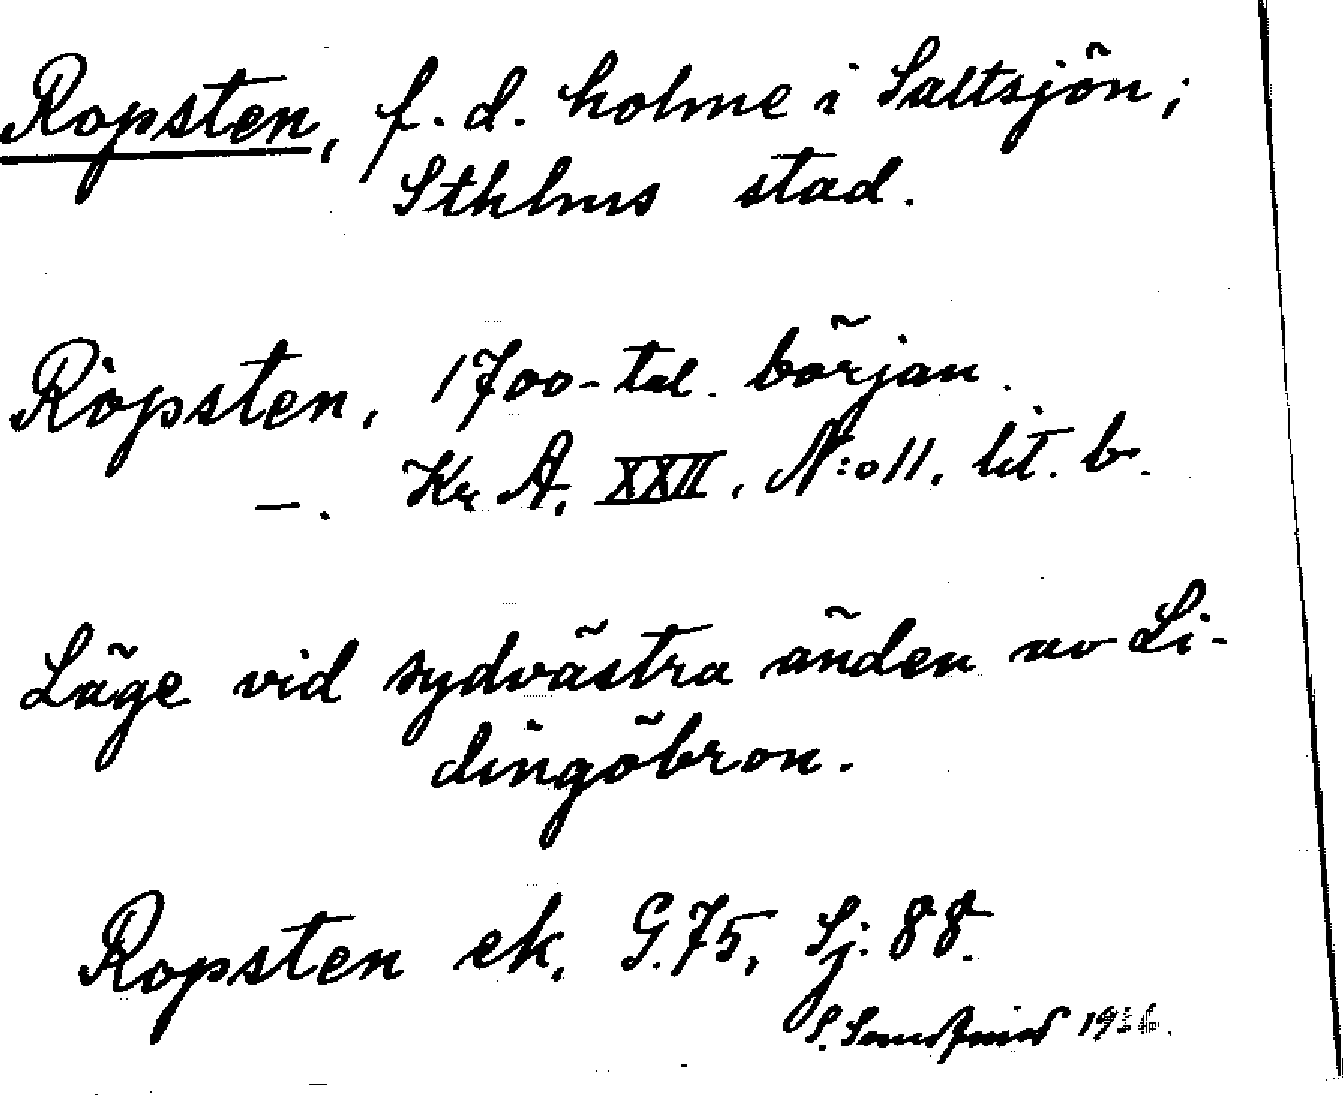 Ropsten, f. d. holme i Saltsjön;
Sthlms stad.
Ropsten, 1700-tal. början.
—. Kr A, XXII, N:o 11, lit. b.
Läge vid sydvästra änden av Li-
dingöbron.
Ropsten ek. G. 75, Sj: 88.
S.